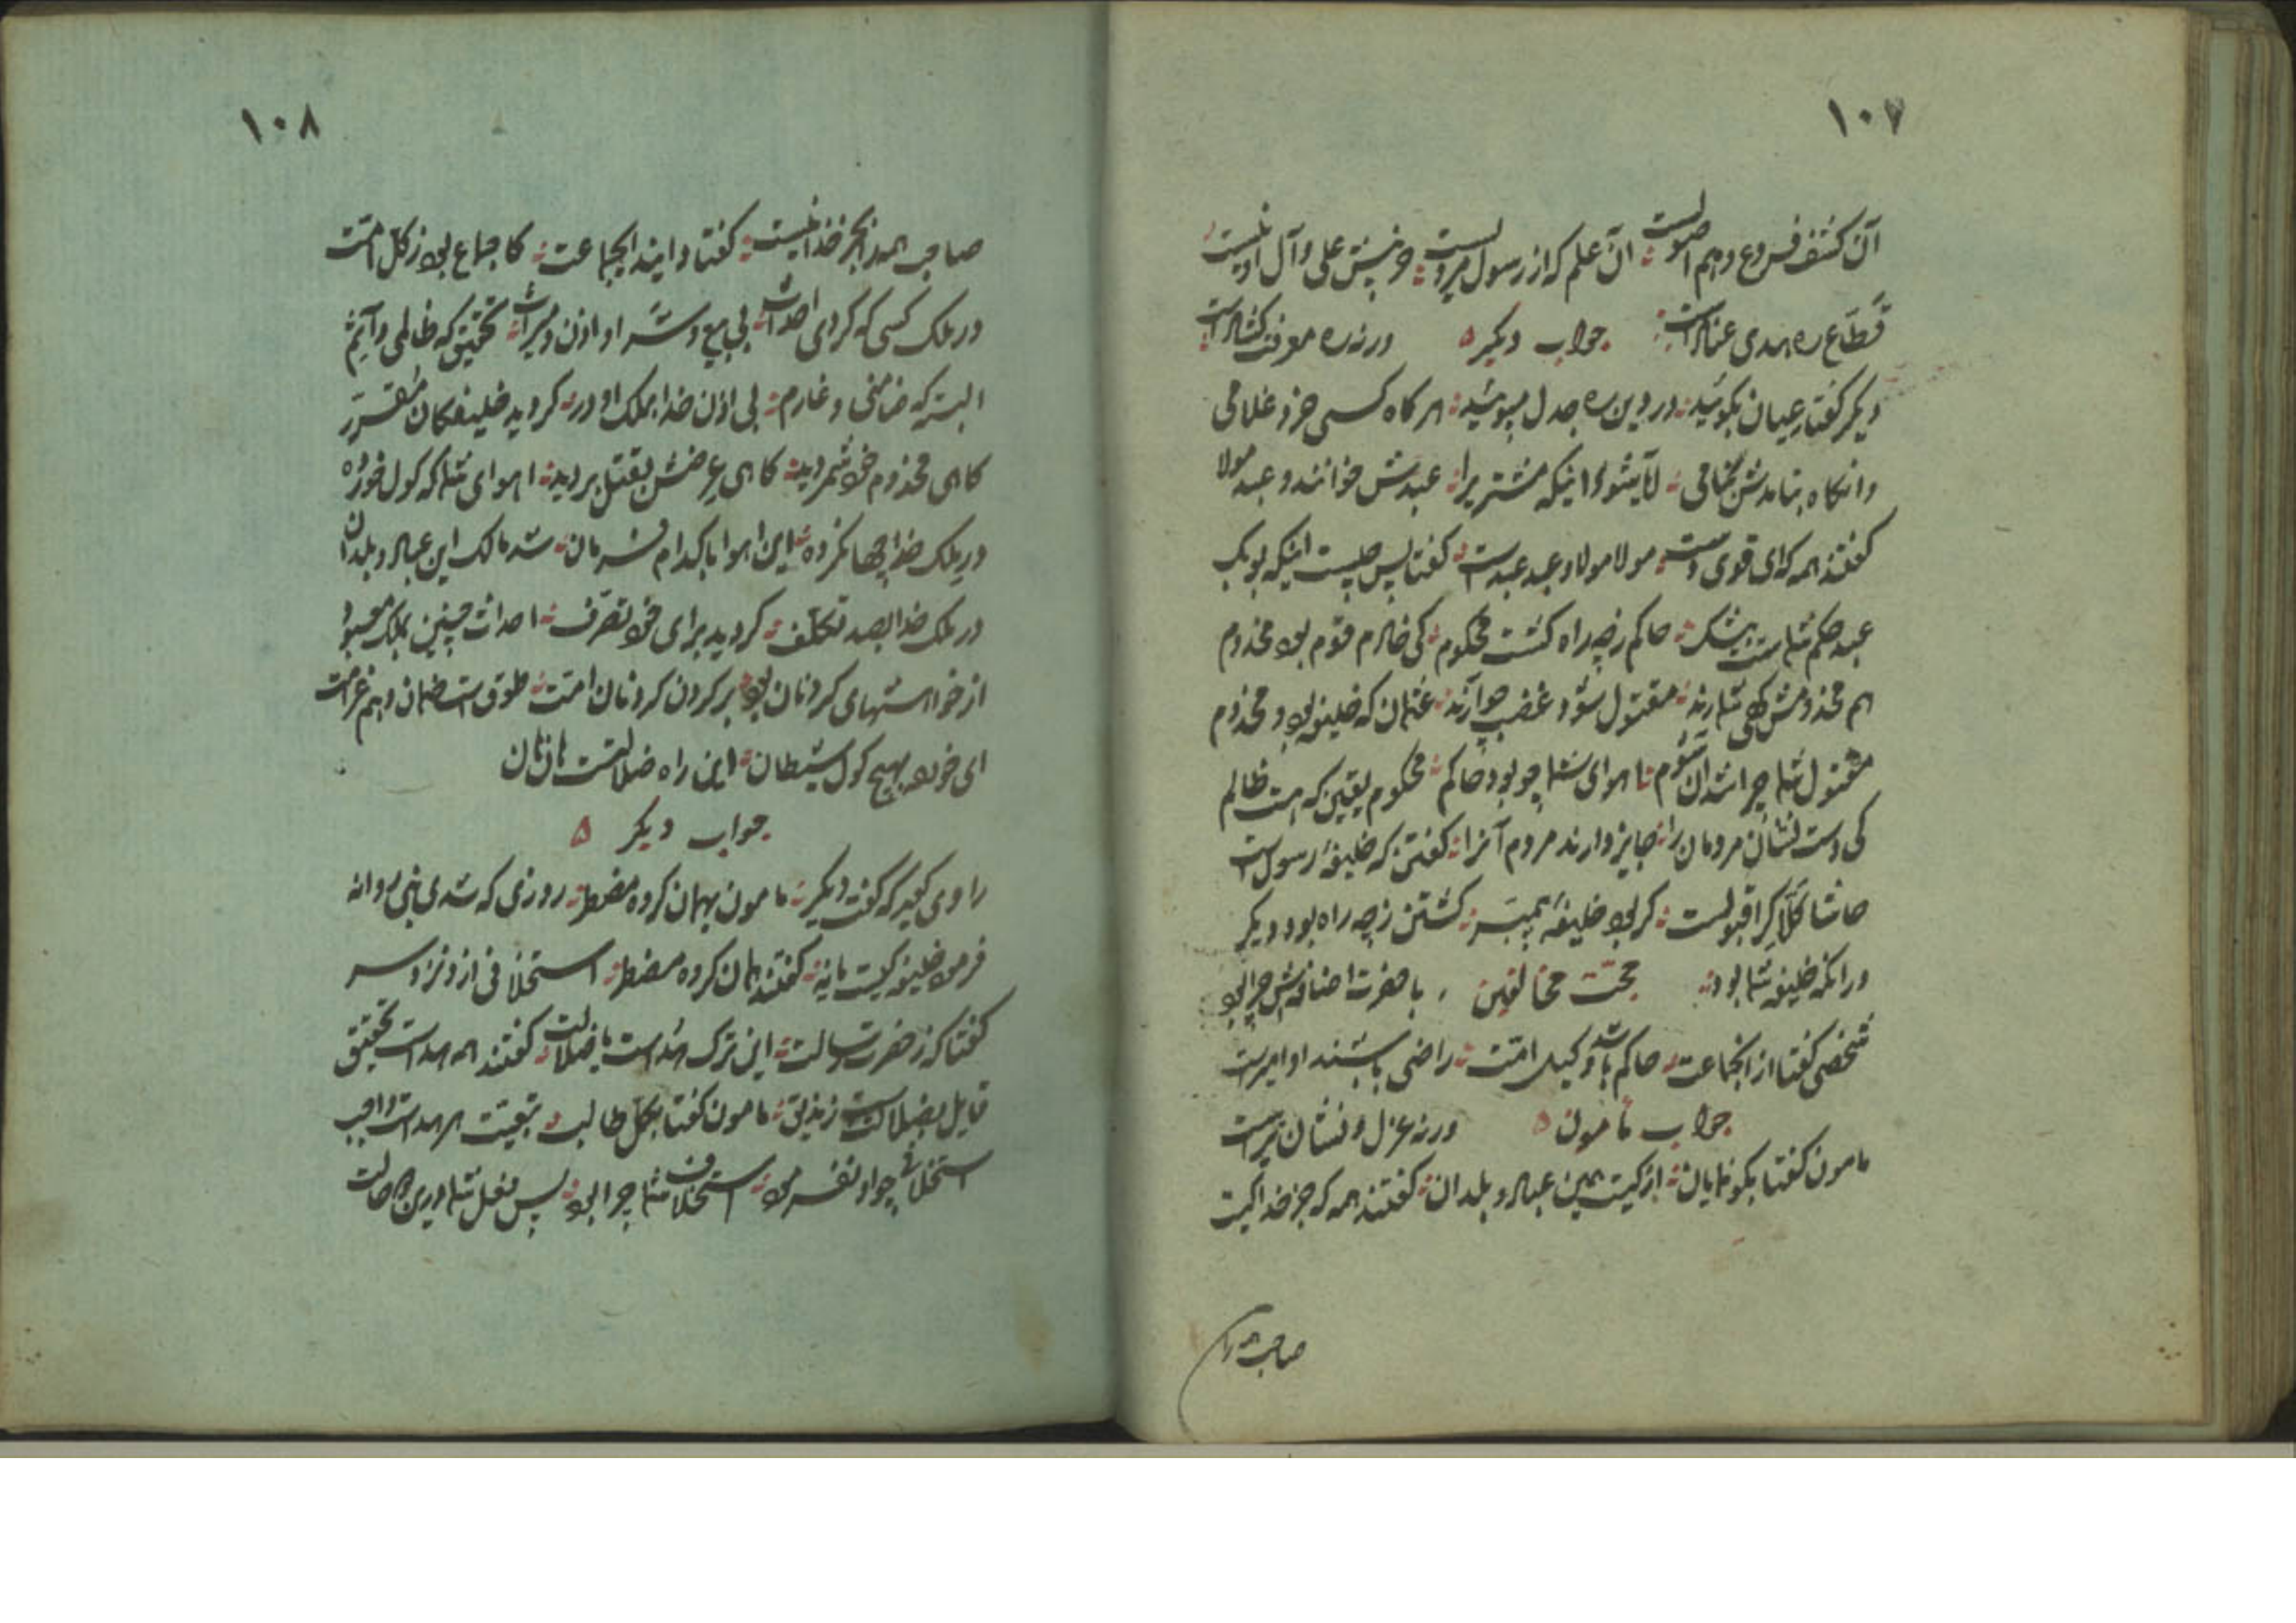 ۱۰۷
آن کشف فروع و هم اصولست ؛ آن علم که از رسول مرویست ؛ جز پیش علی و آل او نیست
قطّاع ره هدی عنادست ؛ جواب دیکر ورنه ره معرفت کشادست
دیکر کفتا عیان بکوئید ؛ در دین ره جدل مپوئید ؛ هر کاه کسی خرد غلامی
وانکاه بنامدش بنامی ؛ لایشود اینکه مشتریرا ؛ عبدش خوانند و عبد مولا
کفتند همه که ای قوی دست ؛ مولا مولا و عبد عبدست ؛ کفتا پس چیست اینکه بوبکر
عبد حکم شماست بیشک ؛ حاکم زچه راه کشت محکوم ؛ کی خادم قوم بود مخدوم
هم مخدومش کهی شمارند ؛ مقتول شود غضب چو آرند ؛ عثمان که خلیفه بود و مخدوم
مقتول شما چرا شد آن شوم ؛ تا اهوای شما چو بود حاکم ؛ محکوم یقین که هست ظالم
کی دست نشان مردمان را ؛ جایز دارند مردم آنرا ؛ کفتن که خلیفهٔ رسول است
حاشا کلّا کرا قبولست ؛ کر بود خلیفهٔ پیمبر ؛ کشتن زچه راه بود دیکر
ور آنکه خلیفه شما بود ؛ حجت مخالفین با حضرت اضافه‌ش چرا بود
شخصی کفتا از انجماعت ؛ حاکم باشد وکیل امّت ؛ راضی باشند او امیرست
جواب مامون ورنه عزل و نشان پذیرست
مامون کفتا بکو نمایان ؛ از کیست همین عباد و بلدان ؛ کفتند همه که جز خدا کیست
صاحب همه را
۱۰۸
صاحب همه را بجز خدا نیست ؛ کفتا دانید ایجماعت ؛ کاجماع بود ز کل امّت
در ملک کسی که کردی احداث ؛ بی بیع و شرا و اذن و میراث ؛ تحقیق که ظالمی و آثم
البته که ضامنی و غارم ؛ بی اذن خدا بملک او در ؛ کردید خلیفکان مقرر
کاهی مخدوم خود شمردید ؛ کاهی عرضش بقتل بردید ؛ اهوای شما که کول خورده
در ملک خدا چها نکرده ؛ این اهوا با کدام فرمان ؛ شد مالک این عباد و بلدان
در ملک خدا بصد تکلف ؛ کردید برای خود تصرّف ؛ احداث چنین بملک معبود
از خواهشهای کردنان بود ؛ بر کردن کردنان امّت ؛ طوق است ضمان و هم غرامت
ای خورده بهیچ کول شیطان ؛ این راه ضلالتست هان هان
جواب دیکر
راوی کوید که کفت دیکر ؛ مامون بهمان کروه مضطر ؛ روزی که شدی نبی روانه
فرمود خلیفه کیست یا نه ؛ کفتند همان کروه مضطر ؛ استخلافی ازو نزد سر
کفتا که ز حضرت رسالت ؛ این ترک هداست یا ضلالت ؛ کفتند همه هداست تحقیق
قایل بضلالت است زندیق ؛ مامون کفتا بکل طالب ؛ تبعیت هر هداست واجب
استخلافی چو او نفرمود ؛ استخلاف شما چرا بود ؛ پس فعل شما درین چه حالت